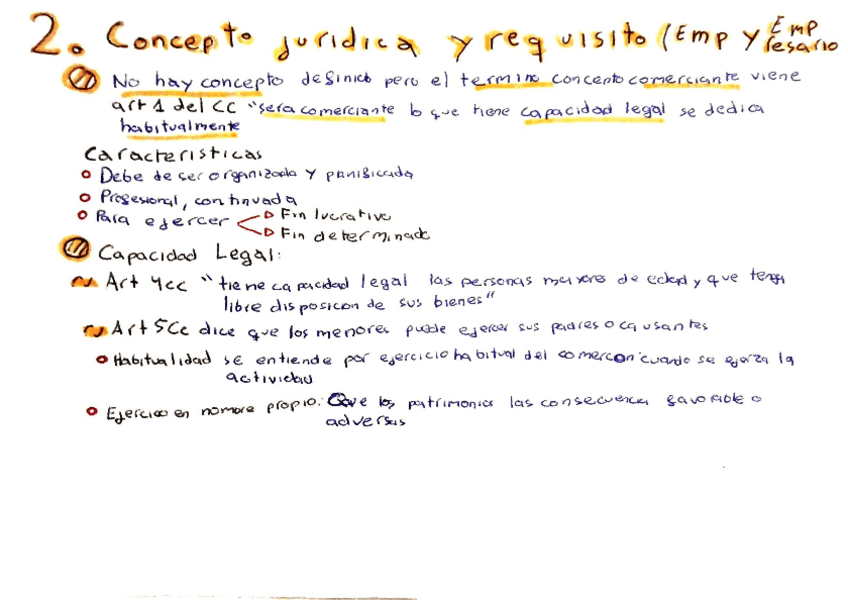 2. Concepto juridica y requisito (Emp y Emp
resario
No hay concepto definido pero el termino concento comerciante viene
art 1 del CC "sera comerciante lo que tiene capacidad legal se dedica
habitualmente
Caracteristicas
Debe de ser organizada y panificada
Profesional, continuada
Para ejercer Fin lucrativo
Fin determinado
Capacidad Legal:
Art 4cc "tiene capacidad legal las personas mayores de edad y que tenga
libre disposicon de sus bienes"
Art 5Cc dice que los menores puede ejercer sus padres o causantes
Habitualidad se entiende por ejercicio habitual del comercon cuando se ejerza la
actividad
Ejercicio en nombre propio: Que los patrimonios las consecuencia favorable o
adversas